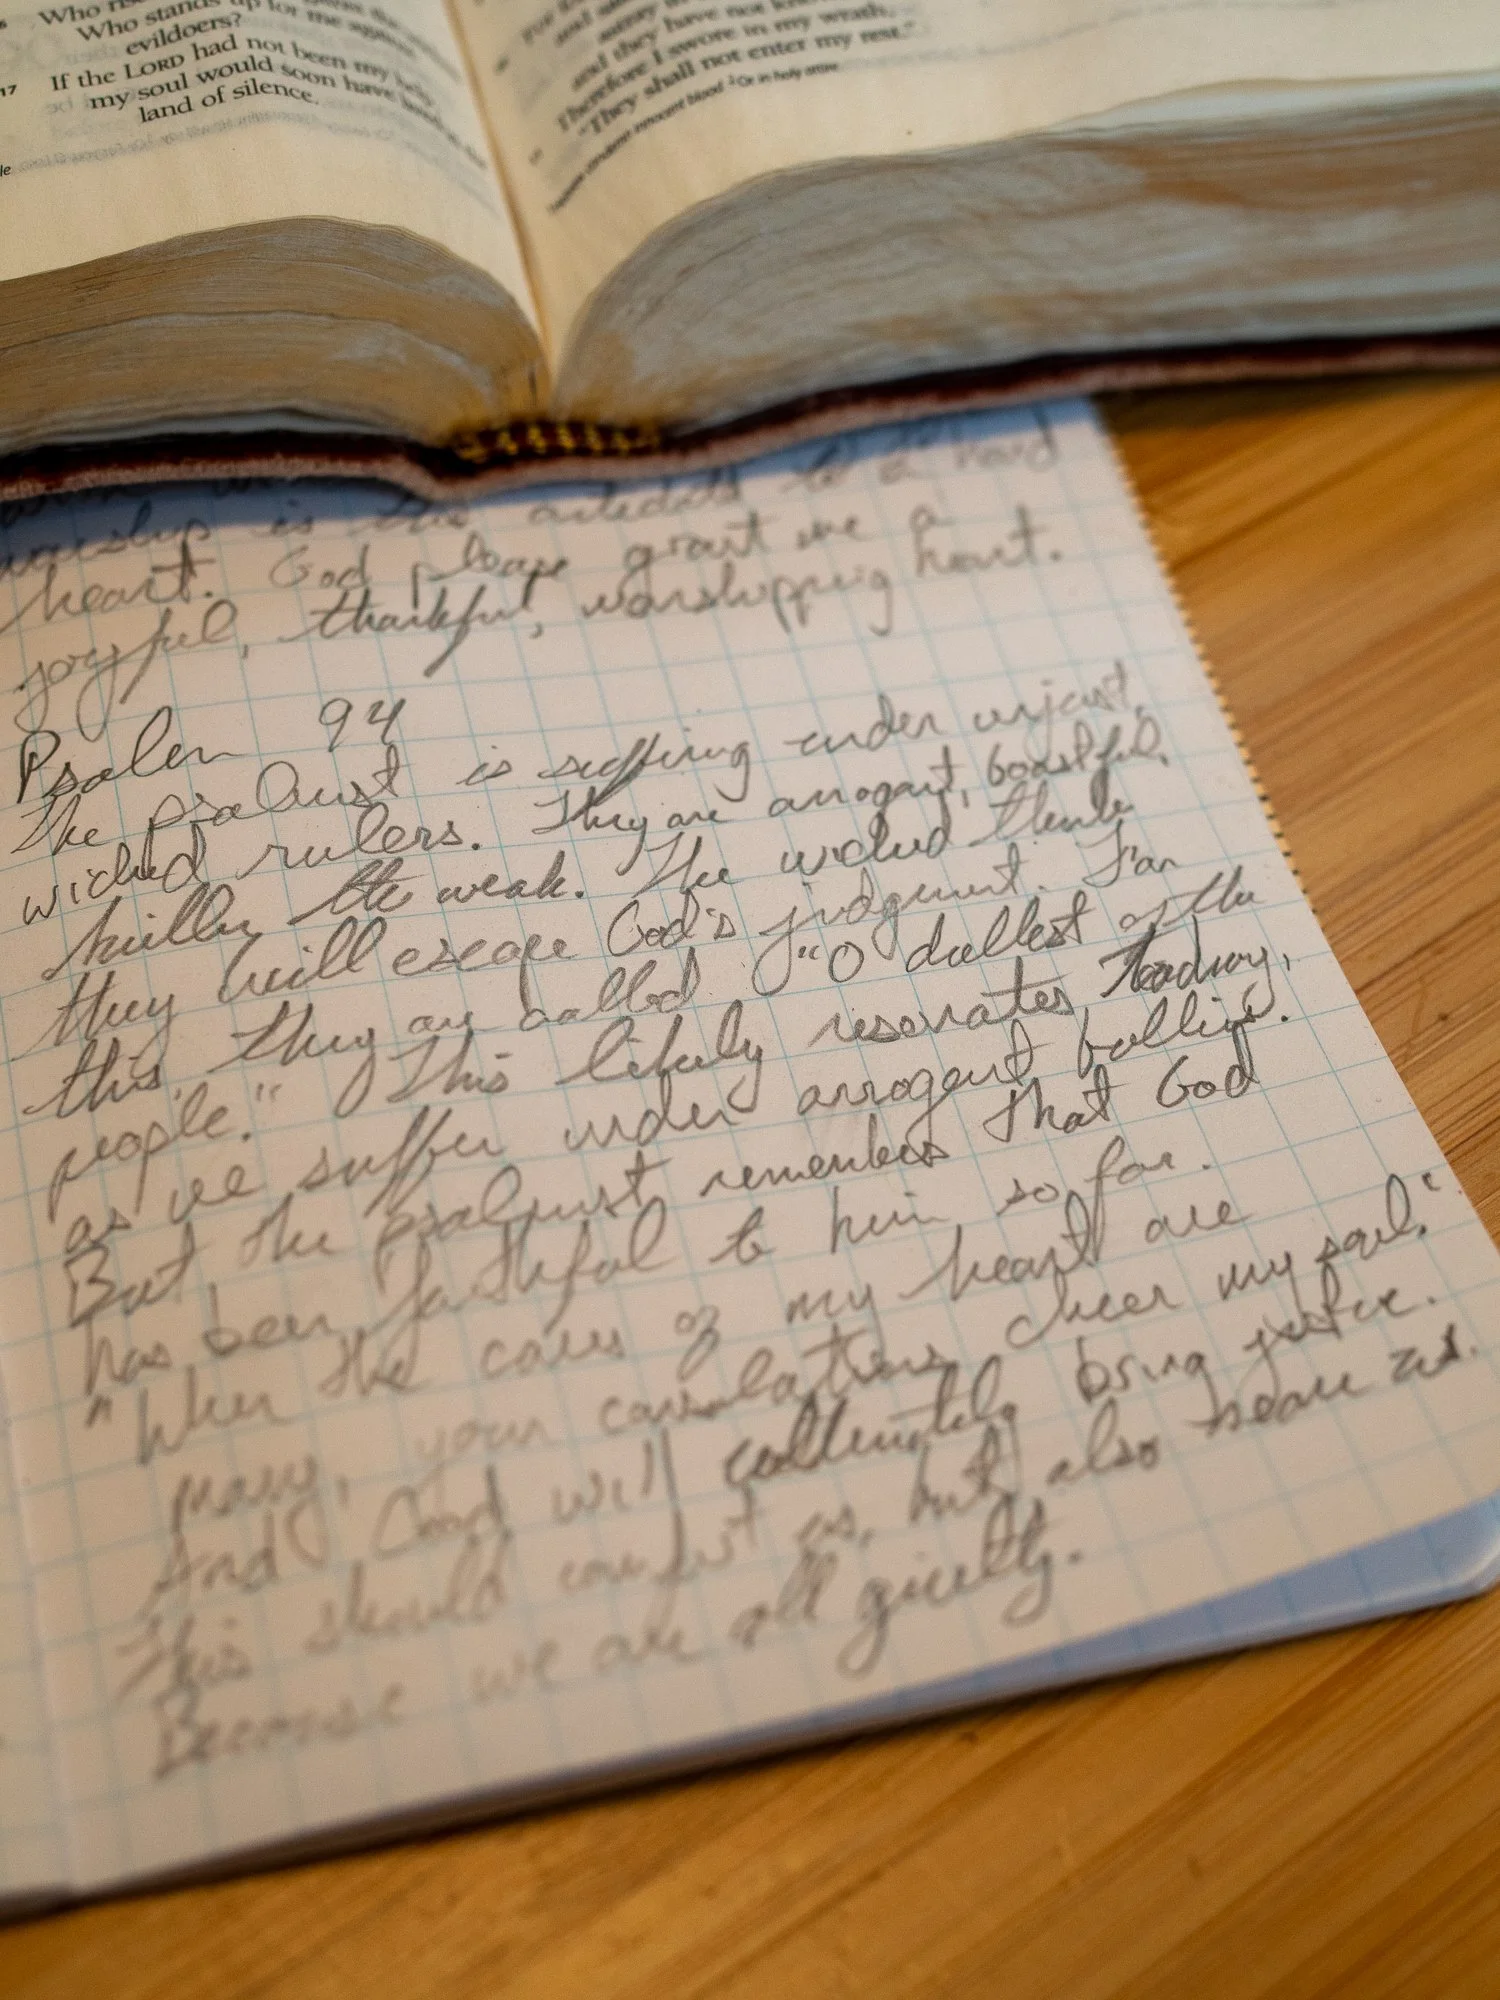 Who stands up for me against
evildoers?
17 If the LORD had not been my
my soul would soon have
land of silence.
and they have not
Therefore I swore in my wrath,
"They shall not enter my rest."
innocent blood 2 Or in holy attire
worship is the antedote to a hard
heart. God please grant me a
joyful, thankful, worshipping heart.
Psalm 94
The psalmist is suffering under unjust,
wicked rulers. They are arrogant, boastful,
killing the weak. The wicked think
they will escape God's judgement. For
this, they are called "O dullest of the
people." This likely resonates today,
as we suffer under arrogant bullies.
But, the psalmist remembers that God
has been faithful to him, so far.
"When the cares of my heart are
many, your consolations cheer my soul."
And God will ultimately bring justice.
This should comfort us, but also us.
Because we are all guilty.